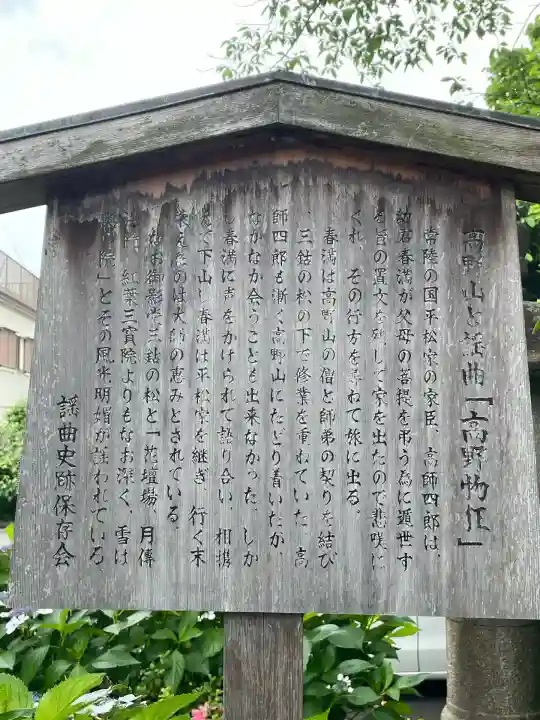 高野山と謡曲「高野物狂」
常陸の国平松家の家臣、高師四郎は、
幼君春満が父母の菩提を弔う為に遁世す
る旨の置文を残して家を出たので悲嘆に
くれ、その行方を尋ねて旅に出る。
春満は高野山の僧と師弟の契りを結び
、三鈷の松の下で修業を重ねていた。高
師四郎も漸く高野山にたどり着いたが、
なかなか会うことも出来なかった。しか
し春満に声をかけられて語り合い、相携
えて下山し春満は平松家を継ぎ、行く末
栄えたのは大師の恵みとされている。
なお御影堂三鈷の松と「花壇場、月傳
紅葉三寳院よりもなお深く、雪は
院」とその風光明媚が謡われている
謡曲史跡保存会